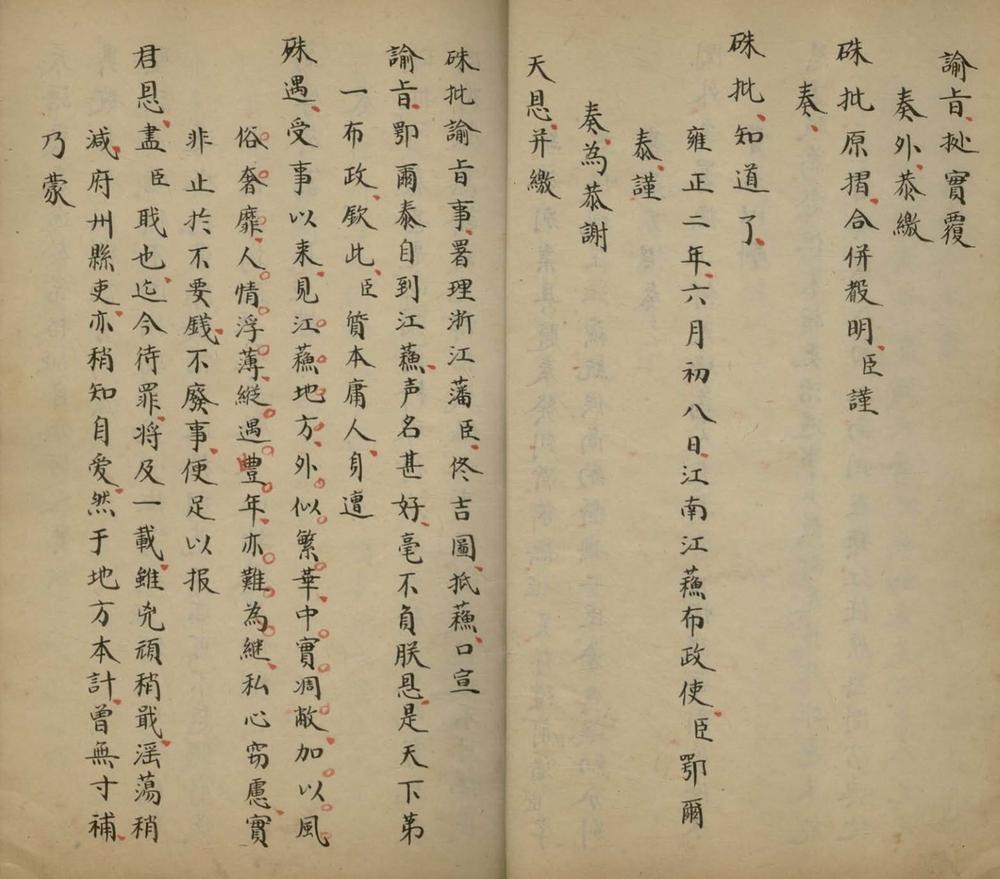 諭旨、㨿實覆
奏外、恭繳
硃批原摺、合併聲明、臣謹
奏、
硃批、知道了、
雍正二年、六月初八日、江南江蘓布政使、臣鄂爾
泰、謹
奏、為恭謝
天恩、并繳
硃批諭旨事、署理浙江藩臣、佟吉圖、抵蘓、口宣
諭旨、鄂爾泰自到江蘓、声名甚好、毫不負朕恩、是天下第
一布政、欽此、臣質本庸人、身遭
殊遇、受事以来、見江蘓地方、外似繁華、中實凋敝、加以風
俗奢靡、人情浮薄、縱遇豐年、亦難為継、私心窃慮、實
非止於不要錢、不廢事、便足以报
君恩、盡臣職也、迄今待罪、将及一載、雖兇頑稍戢、滛蕩稍
減、府州縣吏、亦稍知自爱、然于地方本計、曾無寸補、
乃蒙